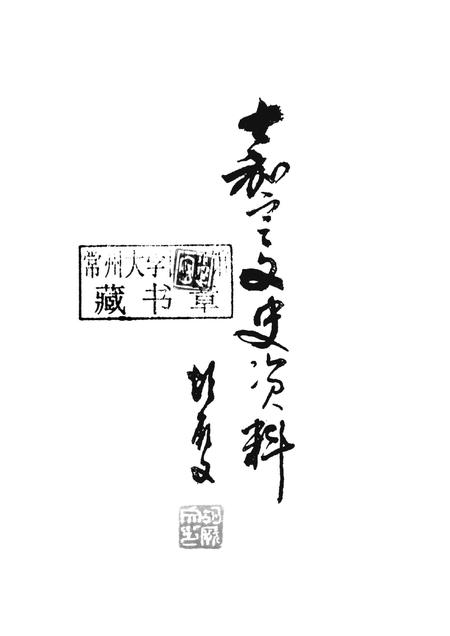 嘉定文史资料
胡厥文
常州大学图书馆
藏书章